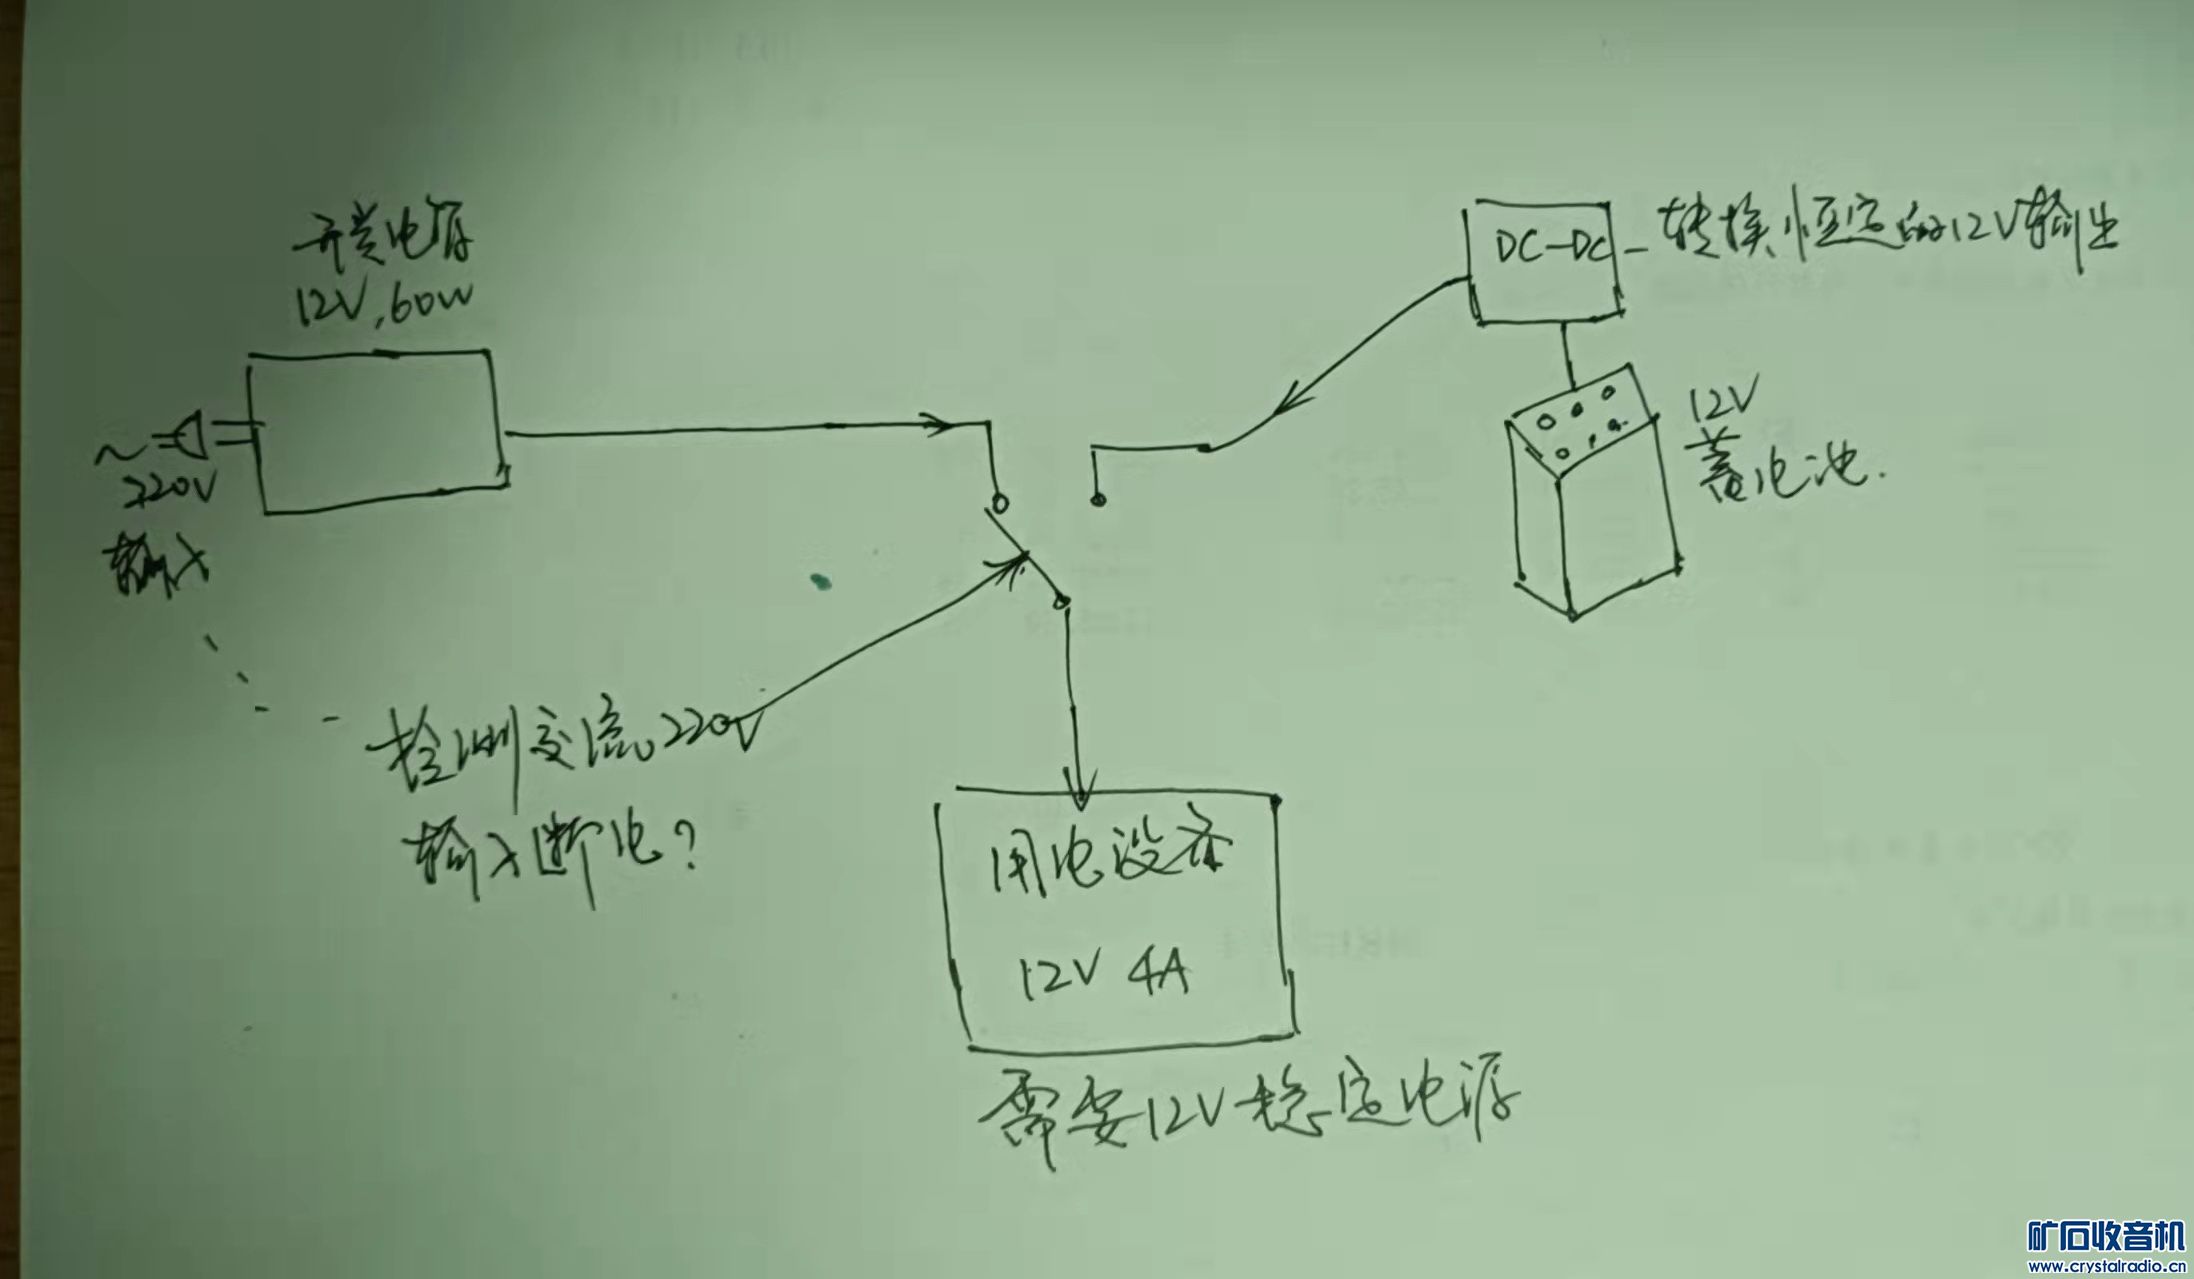 开关电源
12V,60W
DC-DC-转换恒定的12V输出
~
220V
输入
12V
蓄电池.
检测交流220V
输入断电?
用电设备
12V 4A
需要12V稳定电源
矿石收音机
www.crystalradio.cn